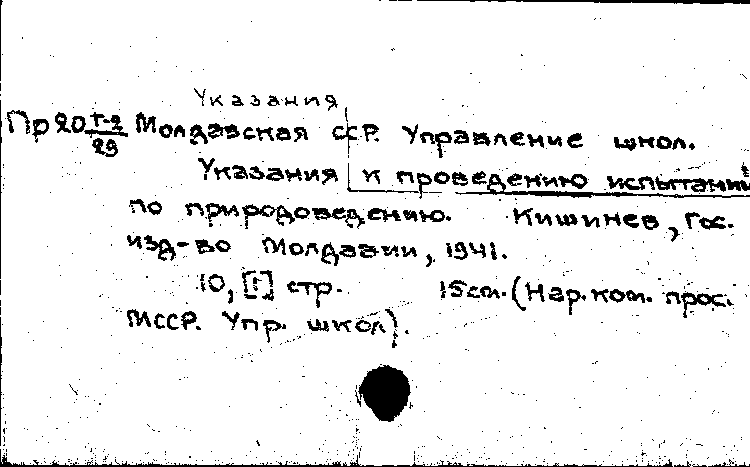 Указания
Пр 20 Г-2/29 Молдавская ССР. Управление школ.
Указания к проведению испытаний
по природоведению. Кишинев, Гос.
изд-во Молдавии, 1941.
10, [1] стр. 15см. (Нар. ком. прос.
МССР. Упр. школ).